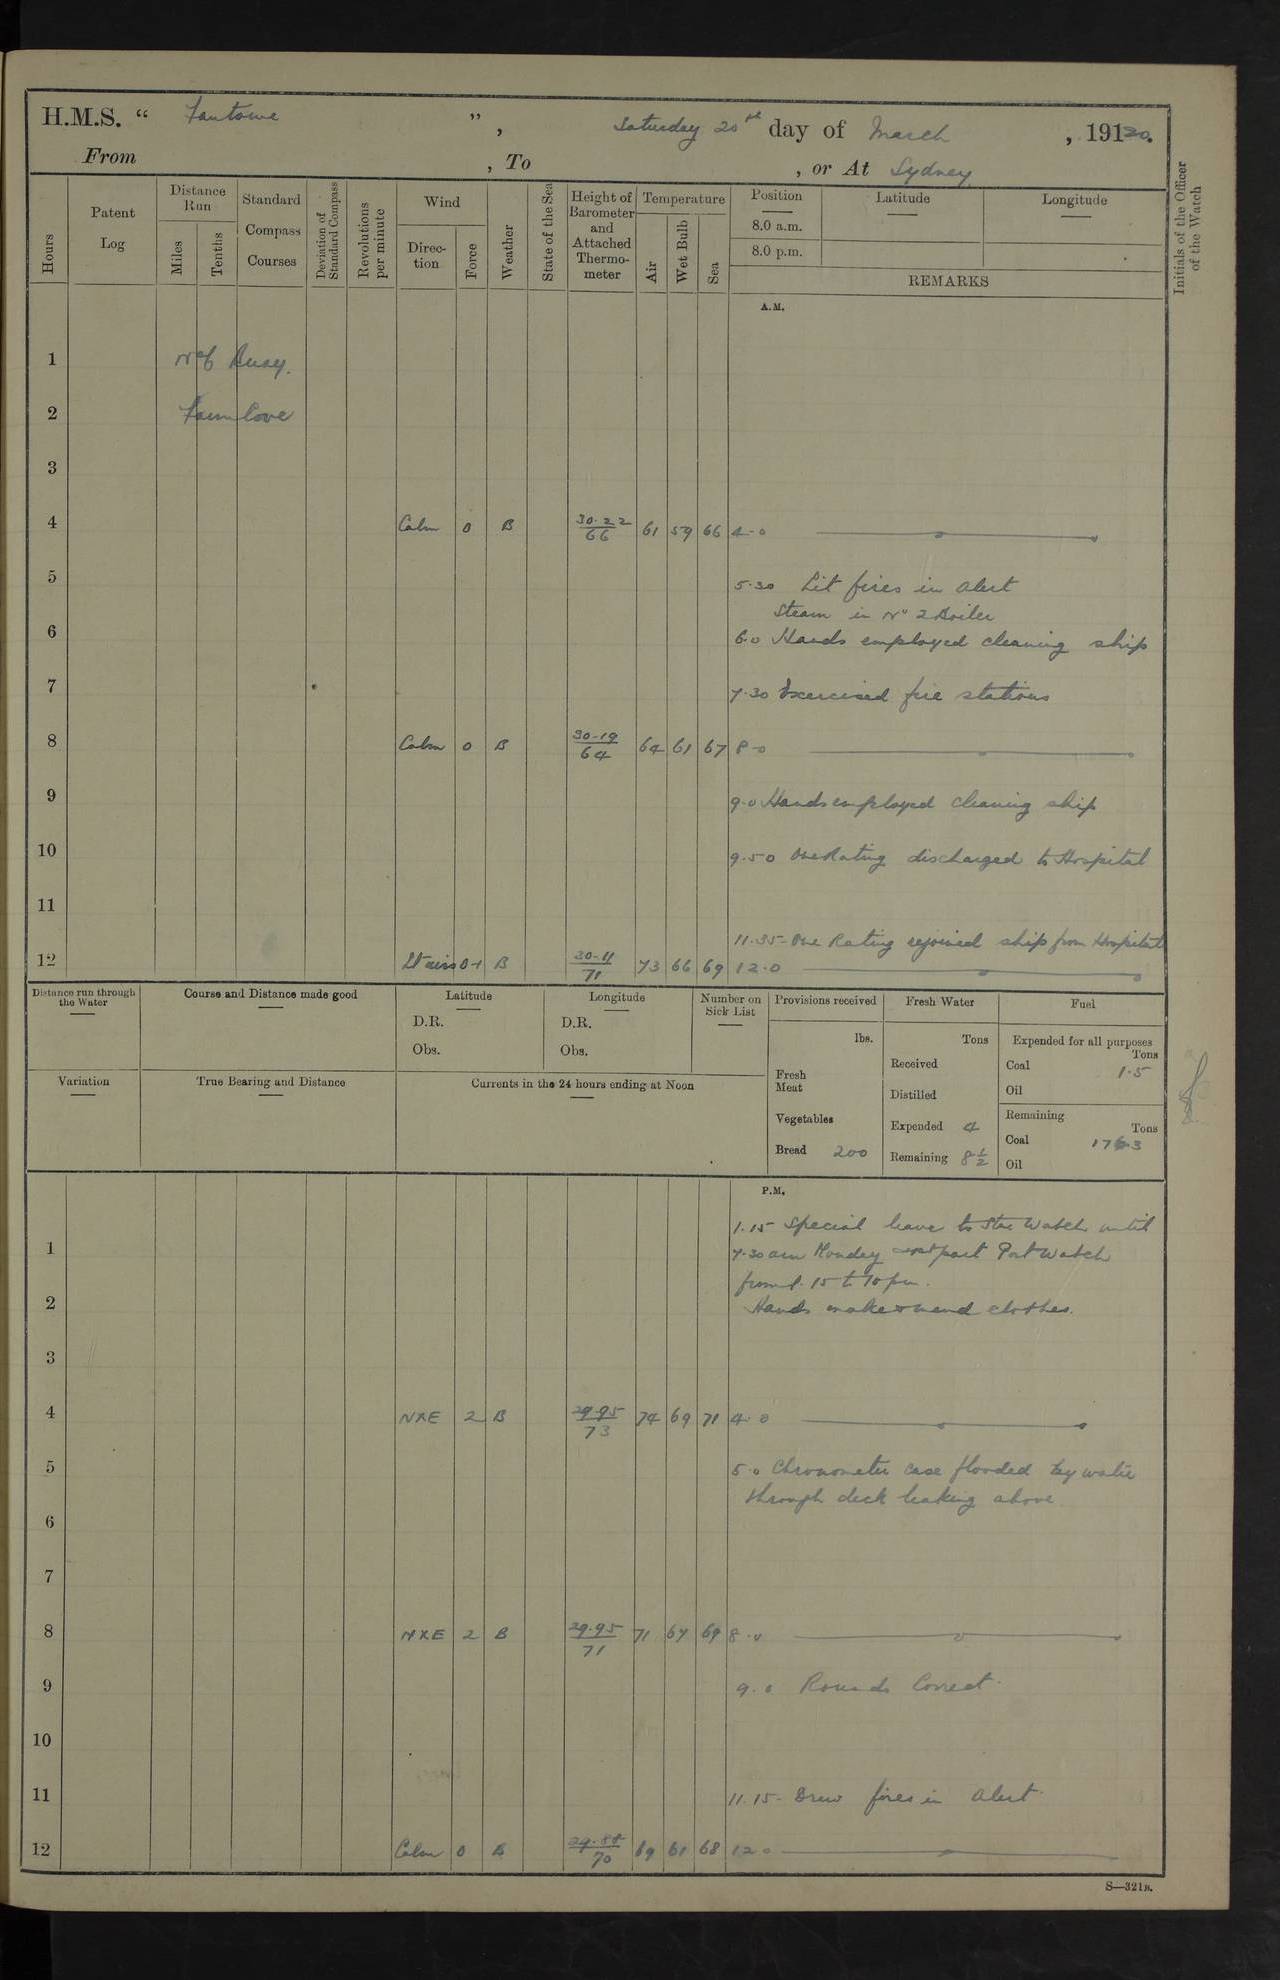 H.M.S. “ Fantome ”, Saturday 20th day of March , 19120.
From , To , or At Sydney
Hours
Patent Log
Distance Run
Miles
Tenths
Standard Compass Courses
Deviation of Standard Compass
Revolutions per minute
Wind
Direc-tion
Force
Weather
State of the Sea
Height of Barometer and Attached Thermo-meter
Temperature
Air
Wet Bulb
Sea
Position
8.0 a.m.
8.0 p.m.
Latitude
Longitude
REMARKS
Initials of the Officer of the Watch
A.M.
1 Quay.
2 Farm Cove
3
4 Calm 0 B 30.22/66 61 59 66 4.0
5 5.30 Lit fires in Alert
Steam in No 2 Boiler
6 6.0 Hands employed cleaning ship
7 7.30 Exercised fire stations
8 Calm 0 B 30.19/64 64 61 67 8.0
9 9.0 Hands employed cleaning ship
10 9.50 One Rating discharged to Hospital
11
11.35 One Rating rejoined ship from Hospital
12 Lt airs 0-1 B 30.11/71 73 66 69 12.0
Distance run through the Water
Course and Distance made good
Latitude
D.R.
Obs.
Longitude
D.R.
Obs.
Number on Sick List
Provisions received
lbs.
Fresh Meat
Vegetables
Bread 200
Fresh Water
Tons
Received
Distilled
Expended 4
Remaining 8½
Fuel
Expended for all purposes
Tons
Coal 1.5
Oil
Remaining
Tons
Coal
Oil
Variation
True Bearing and Distance
Currents in the 24 hours ending at Noon
P.M.
1.15 Special leave to Star Watch until
1 7.30 am Monday part Port Watch
from 1.15 to 10 pm.
2 Hands make & mend clothes.
3
4 NXE 2 B 29.95/73 74 69 71 4.0
5 5.0 Chronometer case flooded by water
through deck leaking above
6
7
8 NXE 2 B 29.95/71 71 67 69 8.0
9 9.0 Rounds Correct.
10
11 11.15 Drew fires in Alert.
12 Calm 0 B 29.88/70 69 61 68 12.0
S—321B.